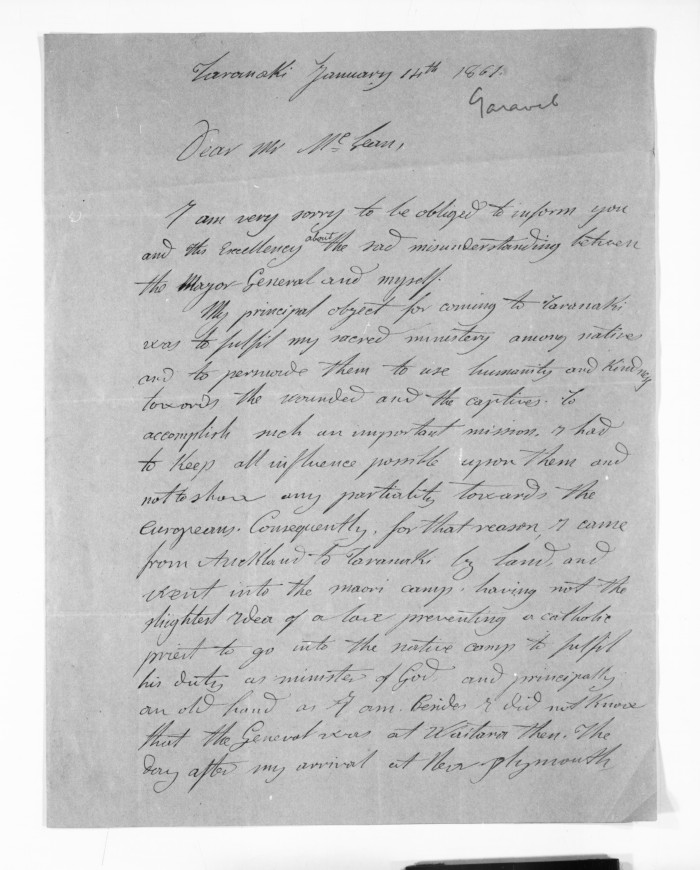 Taranaki January 14th 1861.
Garavel
Dear Mr McLean,
I am very sorry to be obliged to inform you
and His Excellency about the sad misunderstanding between
the Mayor General and myself.
My principal object for coming to Taranaki
was to fulfil my sacred ministery among natives
and to persuade them to use humanity and Kindness
towards the wounded and the captives. To
accomplish such an important mission. I had
to Keep all influence possible upon them and
not to show any partiality towards the
europeans. Consequently, for that reason, I came
from Auckland to Taranaki by land, and
went into the maori camp. having not the
slightest idea of a law preventing a catholic
priest to go into the native camp to fulfil
his duty as minister of God and principally
an old hand as I am. Besides I did not Know
that the General was at Waitara then. The
day after my arrival at New plymouth